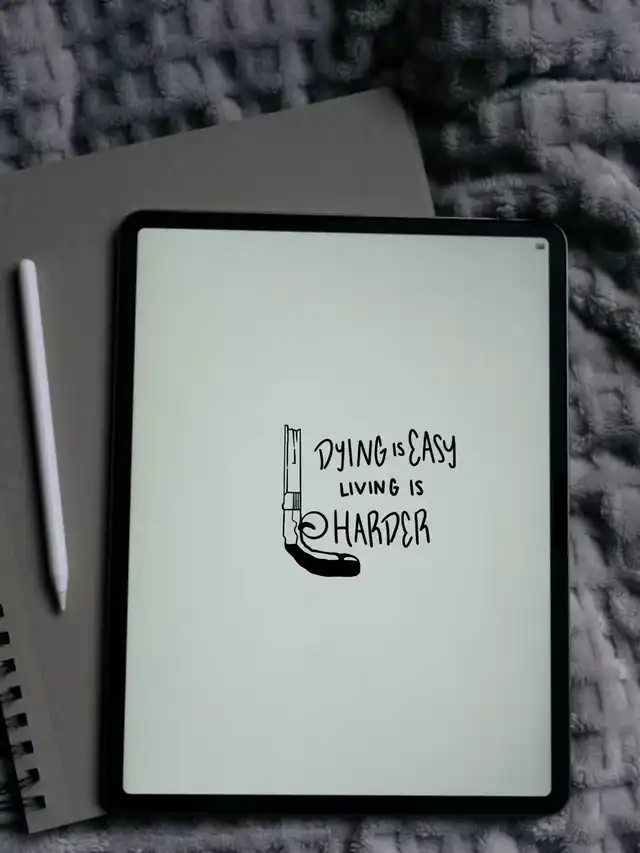 DYING IS EASY
LIVING IS
HARDER